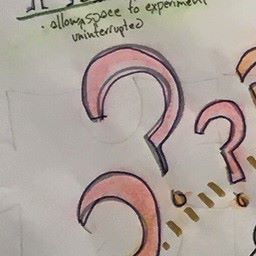 · allow space to experiment
uninterrupted